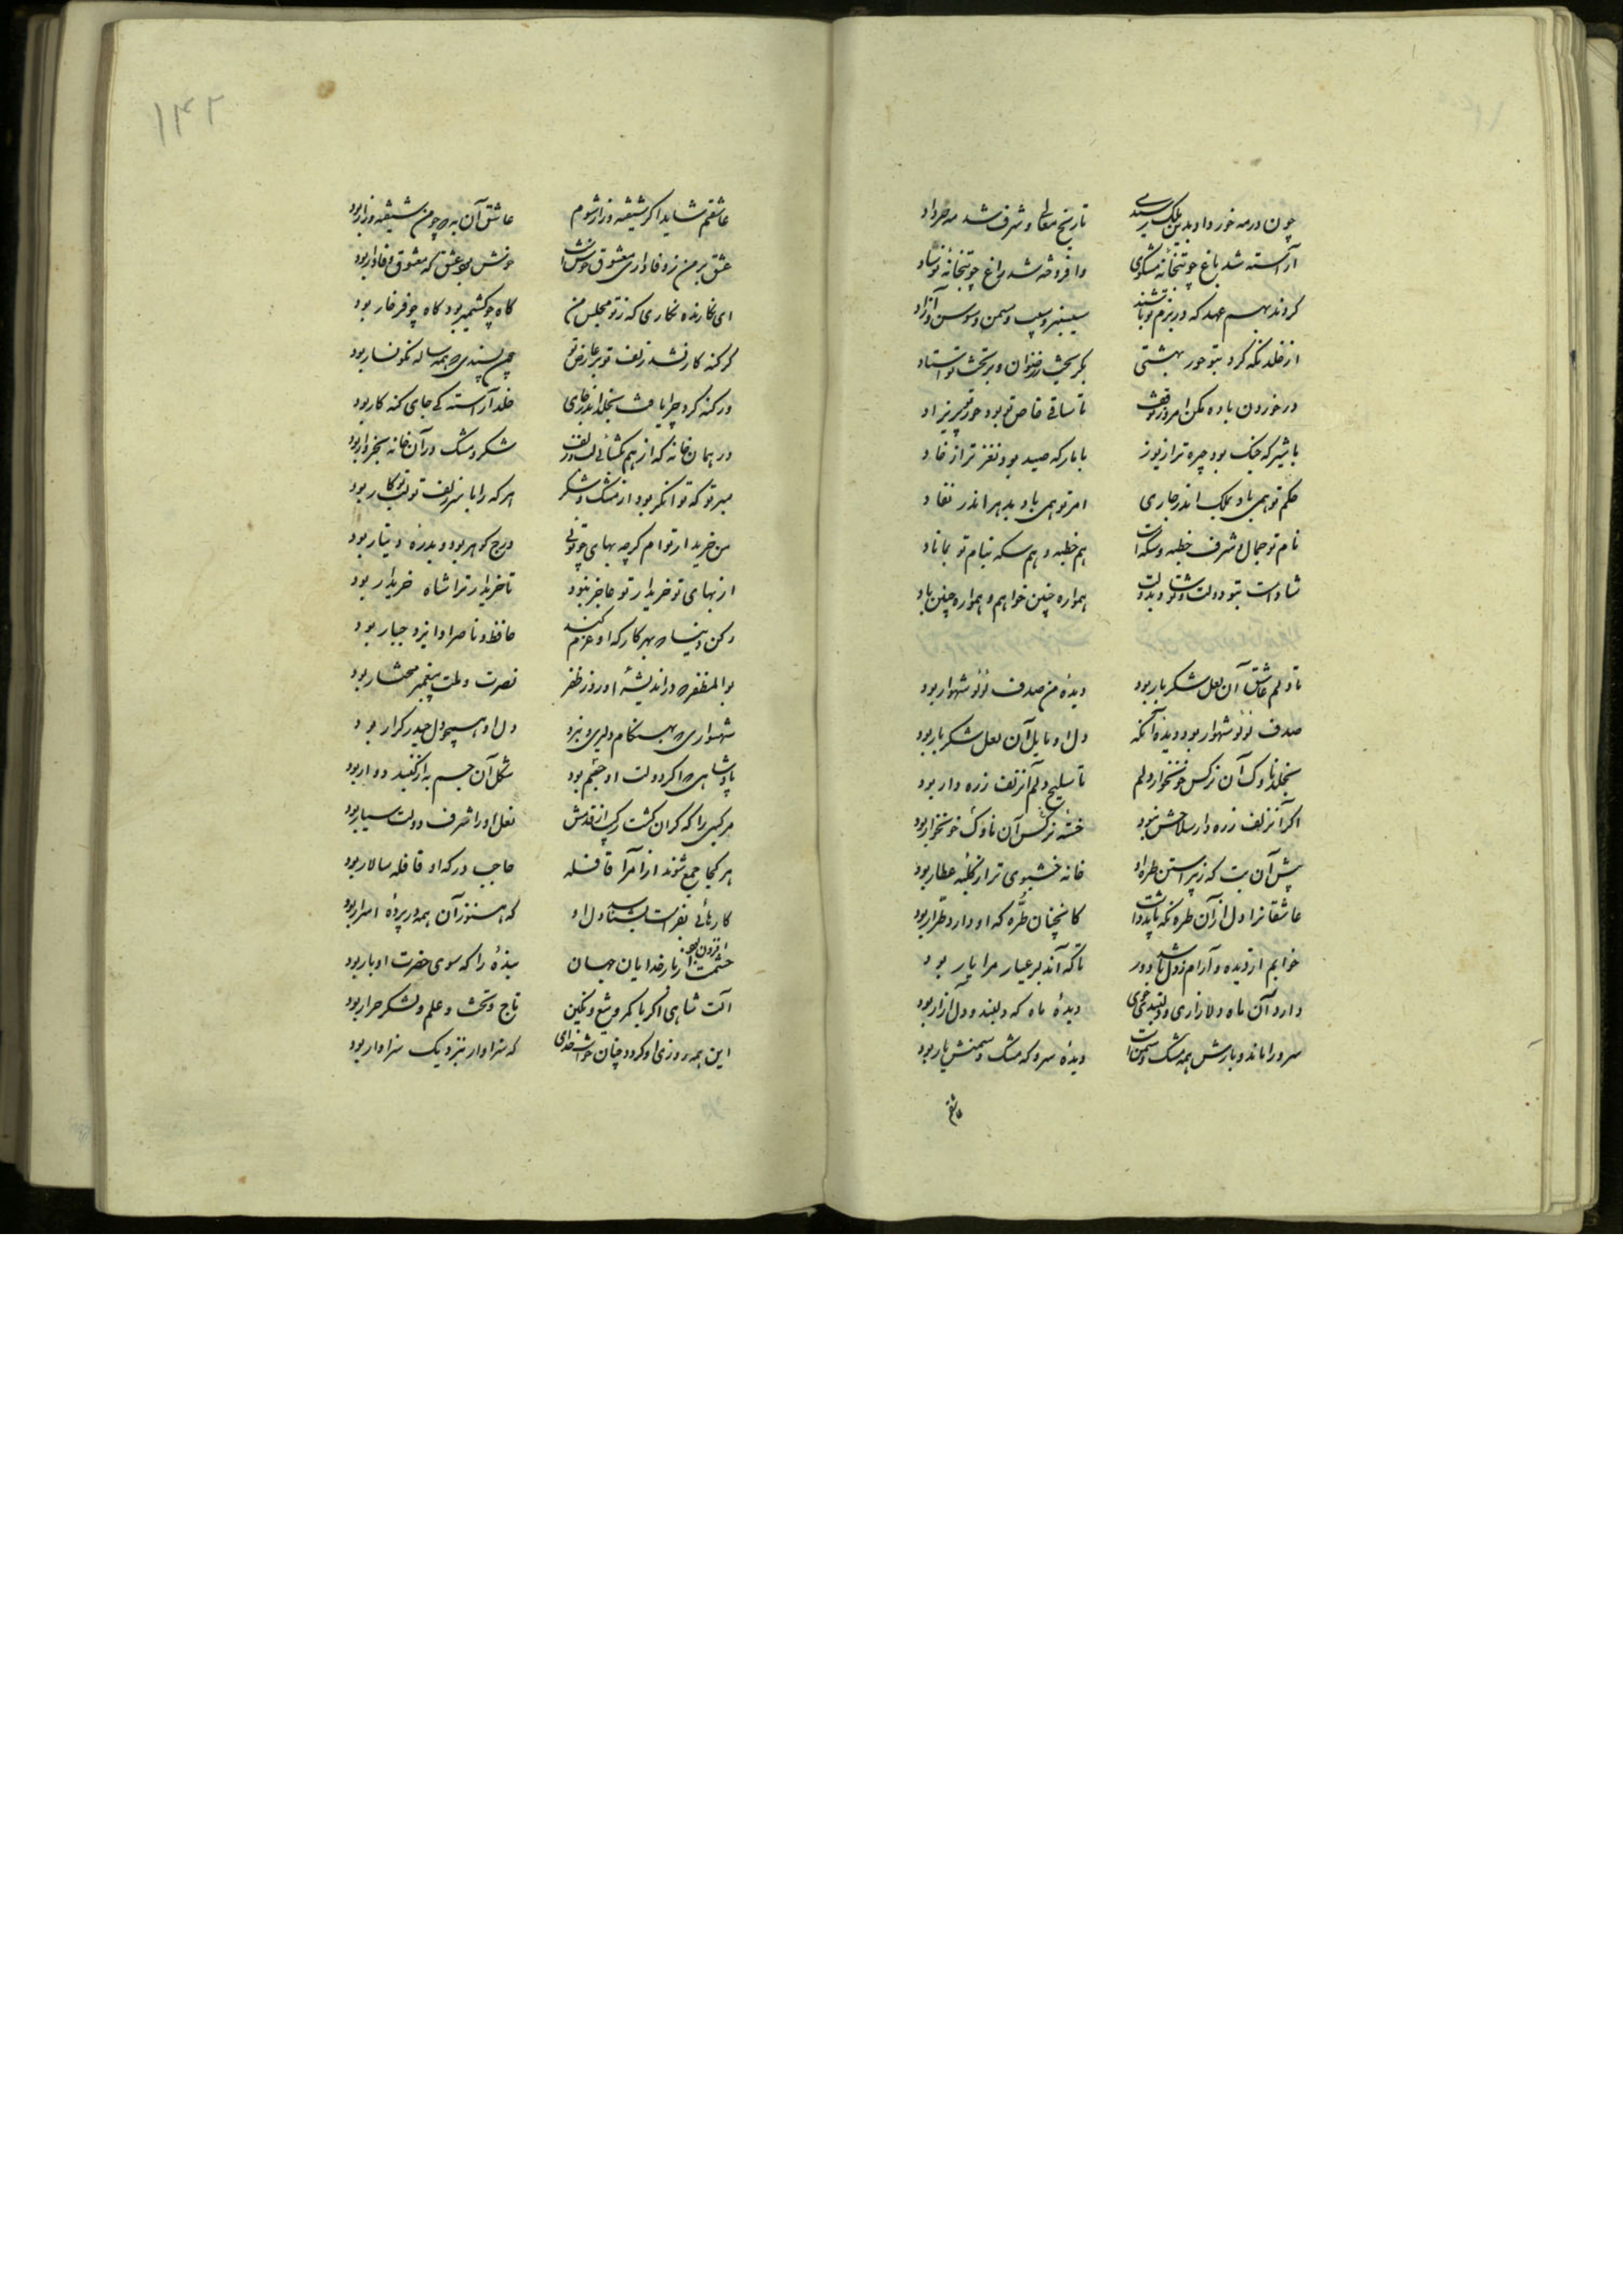 چون در مه خرداد بدین ملک رسیدی تاریخ معالی و شرف شد مه خرداد
آراسته شد باغ چو بتخانهٔ مشکوی وافروخته شد راغ چو بتخانهٔ نوشاد
کردند بهم عهد که در بزم تو باشند سیسنبر و سیب و سمن و سوسن آزاد
از خلد نگه کرد بتو حور بهشتی بگریخت ز رضوان و بر تخت تو استاد
در خوردن باده مکن امروز توقف تا ساقی خاص تو بود حور پریزاد
با شیر که جنگ بود چیره تر از یوز با باز که صید بود نغزتر از خاد
حکم تو همی باد بملک اندر جاری امر تو همی باد بدهر اندر نفاد
نام تو جمال و شرف خطبه و سکه است هم خطبه و هم سکه بنام تو بماناد
شادست بتو دولت و تو شاد بدولت همواره چنین خواهم و همواره چنین باد
تا دلم عاشق آن لعل شکربار بود دیدهٔ من صدف لؤلؤ شهوار بود
صدف لؤلؤ شهوار بود دیدهٔ آنکه دل او مایل آن لعل شکربار بود
بخلد ناوک آن نرگس خونخوار دلم تا سلیح دلم آن زلف زره دار بود
اگر آن زلف زره دار سلاحش نبود خستهٔ نرگس آن ناوک خونخوار بود
پیش آن بت که ز پیراستن طرهٔ او خانه خشبوی تر از کلبهٔ عطار بود
عاشقانرا دل از آن طره نگه باید داشت کانچنان طرّه که او دارد طرّار بود
خوابم از دیده و آرام ز دل باشد دور تا که آن دلبر عیار مرا یار بود
دارد آن ماه دلازاری و دلبند خوی دیدهٔ ماه که دلبند و دل آزار بود
سرو را ماند و بارش همه مشک و سمن است دیدهٔ سرو که مشک و سمنش بار بود
عاشقم
۱۴۲
عاشقم شاید اگر شیفته و زار شوم عاشق آن به که چو من شیفته و زار بود
عشق بر من ز وفاداری معشوق خوش است خوش بود عشق که معشوق وفادار بود
ای نگارنده نگاری که ز تو مجلس من گاه چو کشمیر بود گاه چو فرخار بود
گر گنه کار نشد زلف تو بر عارض تو چون پسندی که همه ساله نگونسار بود
ور گنه کرد چرا یافت بخلد اندر جای خلد آراسته کی جای گنه کار بود
در همان خانه که از هم بگشائی لب و زلف شکر و مشک در آن خانه بخروار بود
میر تو که توانگر بود از مشک و شکر هر که را با سر زلف تو و لب تو کار بود
من خریدار تو ام گرچه بهای چو توئی درج گوهر بود و بدرهٔ دینار بود
از بهای تو خریدار تو عاجز نبود تا خریدار ترا شاه خریدار بود
رکن دنیا که بهر کار که او عزم کند حافظ و ناصر او ایزد جبار بود
بوالمظفر که در اندیشهٔ او روز ظفر نصرت ملت پیغمبر مختار بود
شهسواری که بهنگام دلیری و نبرد دل او همچو دل حیدر کرار بود
پادشاهی که اگر دولت او جسم بود شکل آن جسم به از گنبد دوار بود
مرکبی را که گران گشت رکاب از قدمش نعل او را شرف دولت سیار بود
هر کجا جمع شوند از امرا قافله حاجب درگه او قافله سالار بود
کارهائی بفراست بشناسد دل او که هنوز آن همه در پردهٔ اسرار بود
حشمت افزون بود از بار خدایان جهان بندهٔ را که سوی حضرت او بار بود
آلت شاهی اگر با کمر و تیغ و نگین تاج و تخت و علم و لشکر جرار بود
این همه روزی او کرد و چنان خواست خدای که سزاوار بنزدیک سزاوار بود